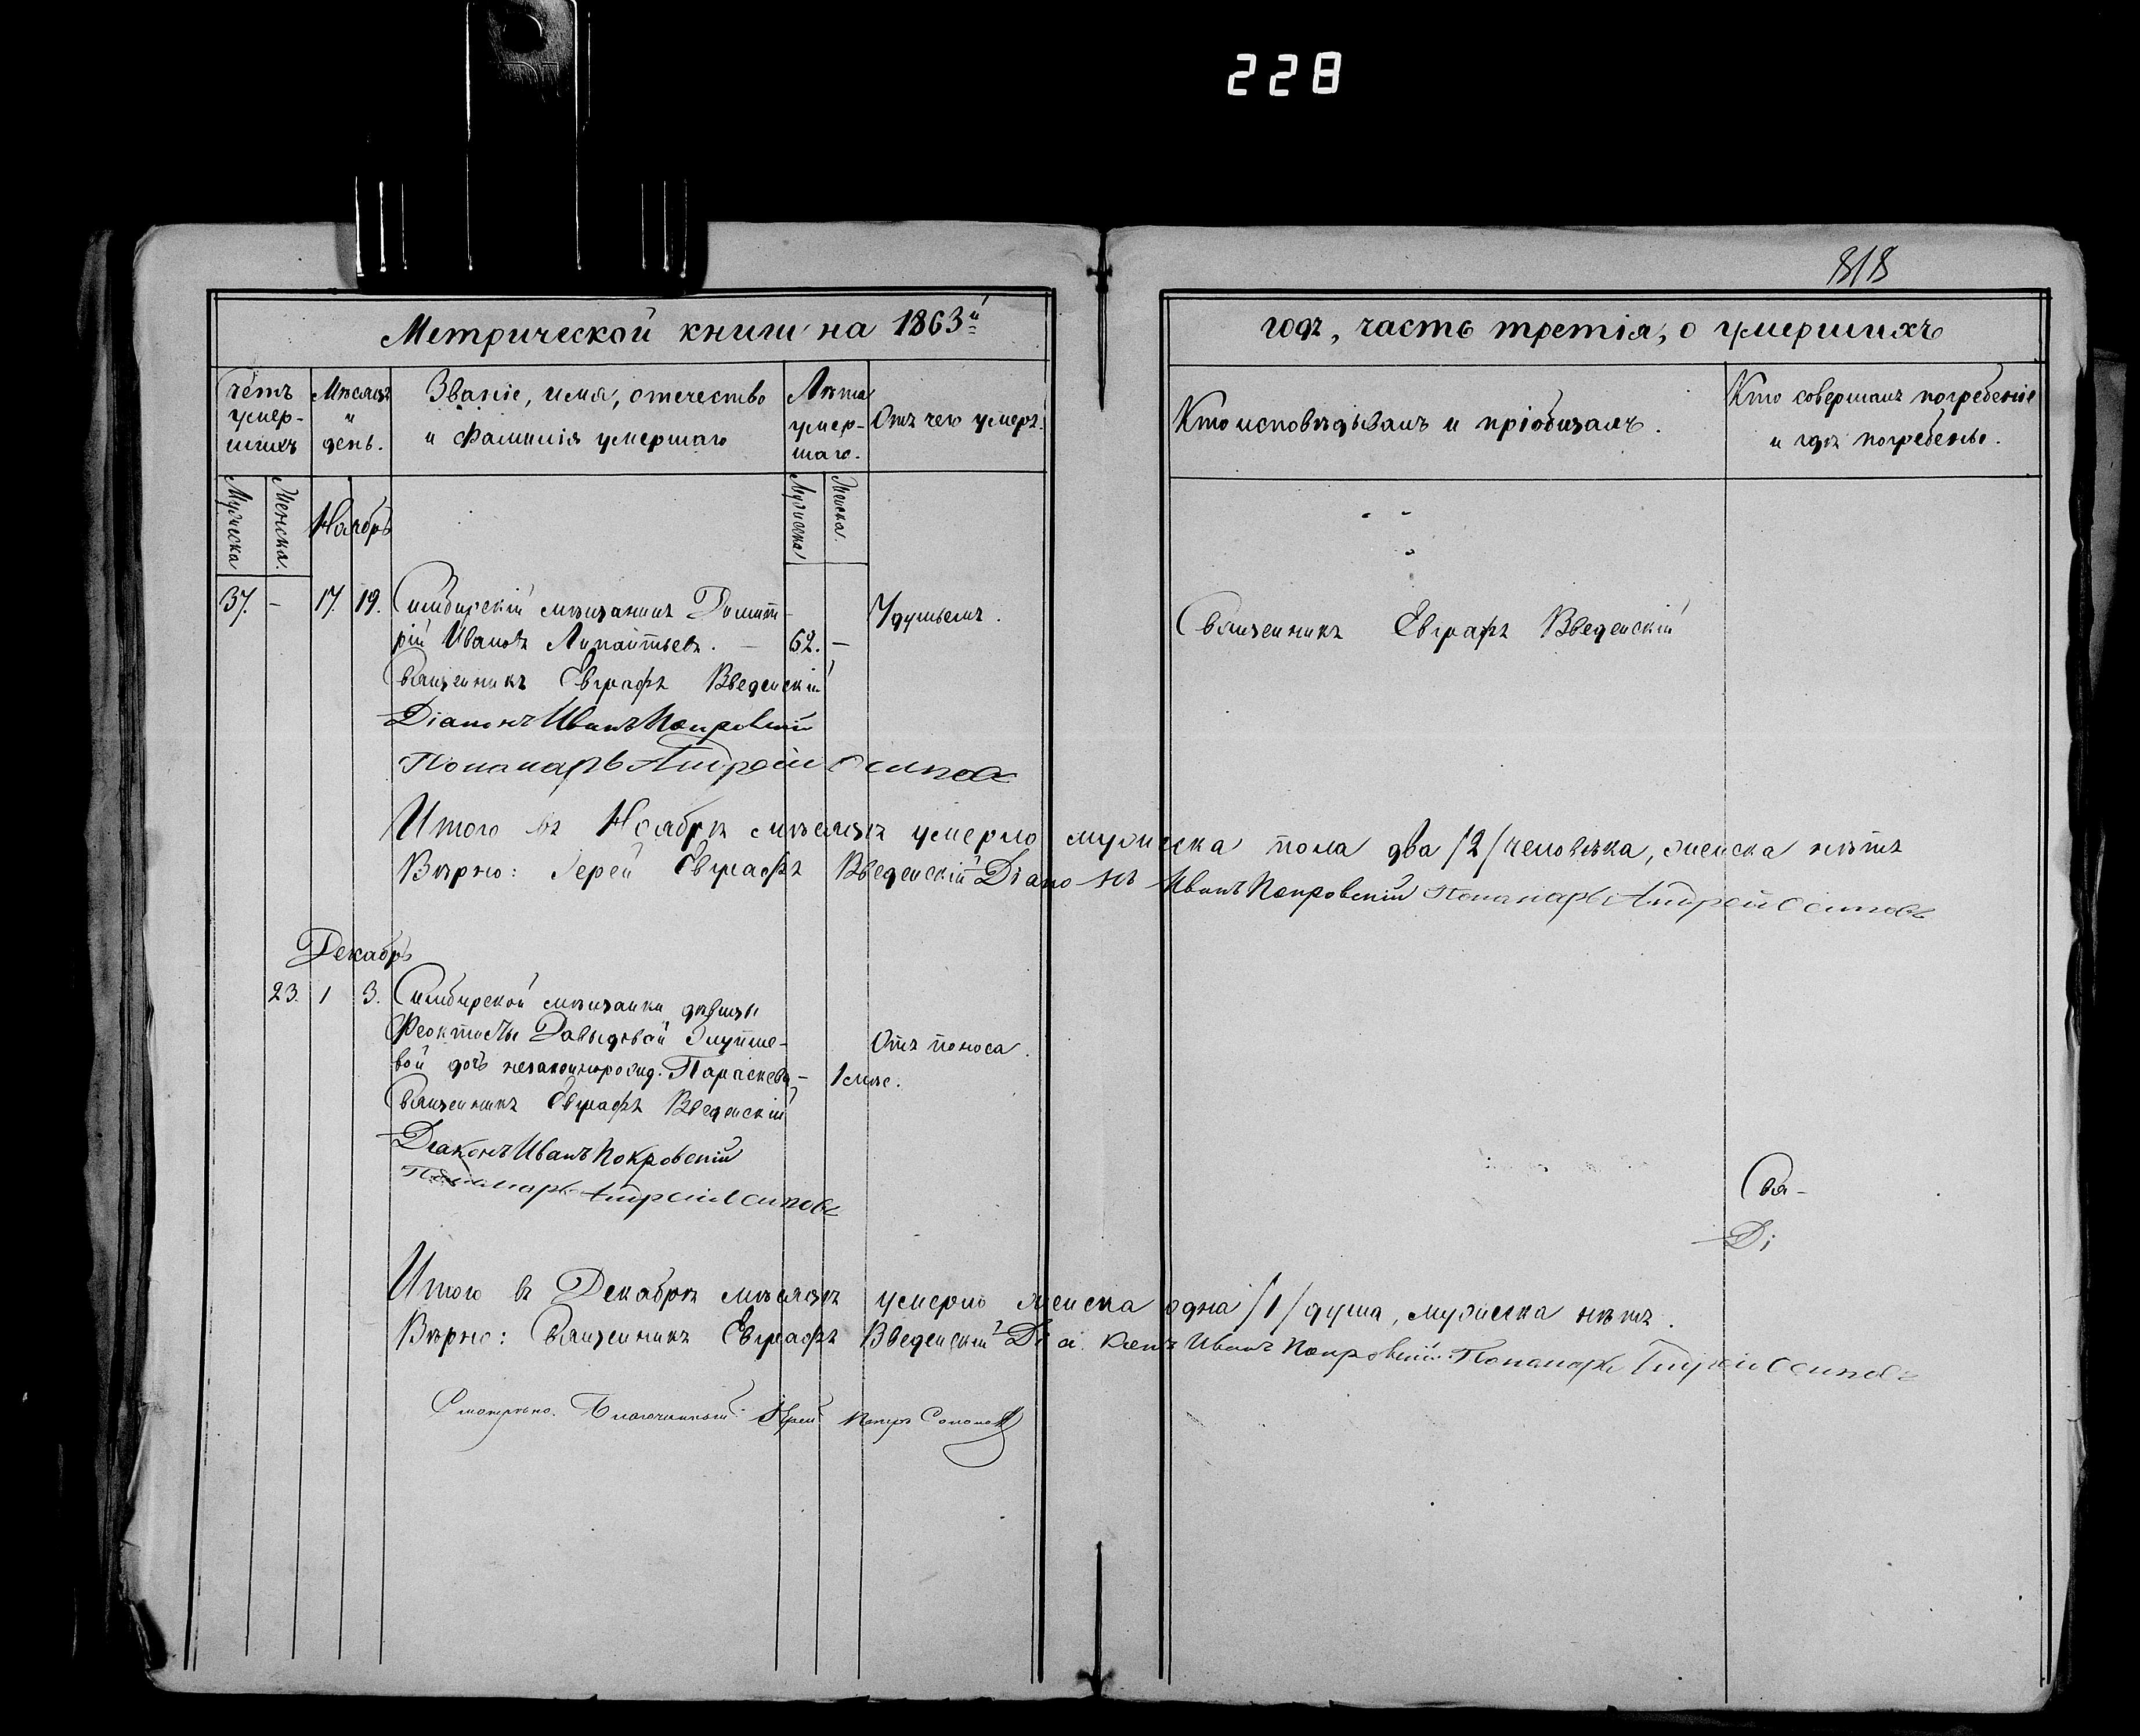 228
818
Метрической книги на 1863й
годъ, часть третія, о умершихъ
Счетъ умер-шихъ
Мѣсяцъ и день.
Званіе, имя, отчество и фамилія умершаго
Лѣта умер-шаго.
Отъ чего умеръ.
Кто исповѣдывалъ и пріобщалъ.
Кто совершалъ погребеніе и гдѣ погребены.
Мужеска
Женска.
Ноябрь
Мужеска
Женска.
37. - 17. 19. Симбирскій мѣщанинъ Димит-
рій Ивановъ Липатьевъ. - 62. -
Удушьемъ.
Священникъ Евграфъ Введенскій
Священникъ Евграфъ Введенскій
Діаконъ Иванъ Покровскій
Пономарь Андрей Осиповъ
Итого въ Ноябрѣ мѣсяцѣ умерло мужеска пола два /2/ человѣка, женска нѣтъ
Вѣрно: Іерей Евграфъ Введенскій Діаконъ Иванъ Покровскій Пономарь Андрей Осиповъ
Декабрь
23. 1 3. Симбирской мѣщанки дѣвицы
Феоктисты Давыдовой
вой дочь незаконнорожд. Параскева - 1 мѣс.
Отъ поноса.
Священникъ Евграфъ Введенскій
Діаконъ Иванъ Покровскій
Пономарь Андрей Осиповъ
Свя-
Ді
Итого въ Декабрѣ мѣсяцѣ умерло женска одна /1/ душа, мужеска нѣтъ.
Вѣрно: Священникъ Евграфъ Введенскій Діаконъ Иванъ Покровскій Пономарь Андрей Осиповъ
Благочинный Іерей Петръ